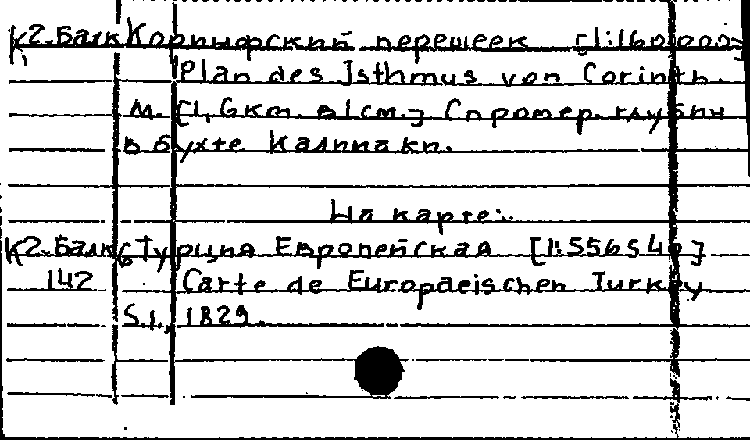 К2.Балк Коринфский перешеек [1:160000]
Plan des Isthmus von Corinth.
М. [1,6км. в 1см.] С промер. глубин
в бухте Калипаки.
На карте:
К2.Балк Турция Европейская [1:556540]
142 Carte de Europaeischen Turkey
S.l., 1829.